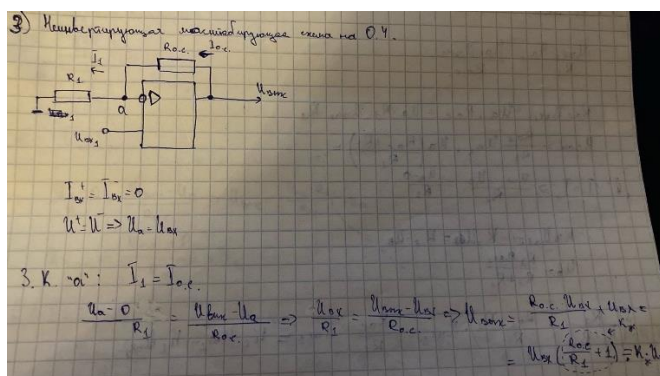 3) Неинвертирующая масштабирующая схема на О.У.
I₁ Rо.с. Iо.с.
R₁ Uвых
a
Uвх₁
I⁺вх = I⁻вх = 0
U⁺ = U⁻ => Uа = Uвх
З.К. "а": I₁ = Iо.с.
(Uа - 0)/R₁ = (Uвых - Uа)/Rо.с. => Uвх/R₁ = (Uвых - Uвх)/Rо.с. => Uвых = (Rо.с. Uвх)/R₁ + Uвх =
= Uвх (Rо.с./R₁ + 1) = K · U